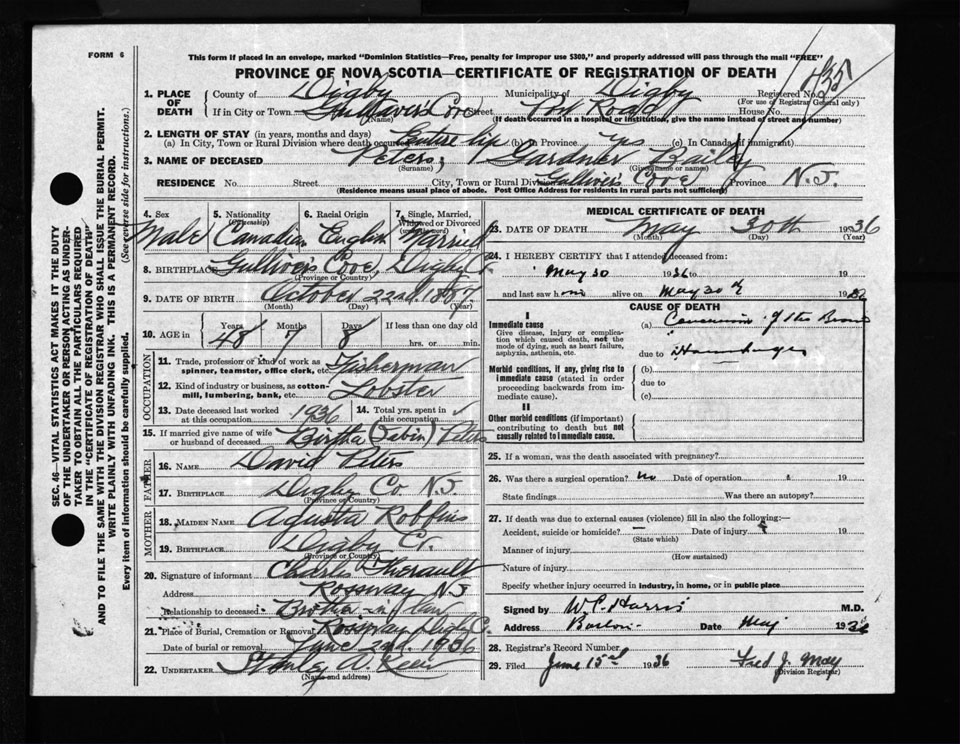 FORM 6
This form if placed in an envelope, marked "Dominion Statistics—Free, penalty for improper use $300," and properly addressed will pass through the mail "FREE"
PROVINCE OF NOVA SCOTIA—CERTIFICATE OF REGISTRATION OF DEATH
435
1. PLACE OF DEATH County of Digby Municipality of Digby Registered No.
(For use of Registrar General only)
If in City or Town Gulliver's Cove Street Road House No.
(Name) (If death occurred in a hospital or institution, give the name instead of street and number)
2. LENGTH OF STAY (in years, months and days)
(a) In City, Town or Rural Division where death occurred Entire life (b) in Province yrs (c) In Canada (if immigrant)
3. NAME OF DECEASED Peters, Gardner Bailey
(Surname) (Given name or names)
RESIDENCE No. Street City, Town or Rural Division Gulliver's Cove Province N.S.
(Residence means usual place of abode. Post Office Address for residents in rural parts not sufficient)
4. Sex Male
5. Nationality (Citizenship) Canadian
6. Racial Origin English
7. Single, Married, Widowed or Divorced Married
8. BIRTHPLACE Gulliver's Cove, Digby Co
(Province or Country)
9. DATE OF BIRTH October 22nd. 1887
(Month) (Day) (Year)
10. AGE in Years 48 Months 7 Days 8 If less than one day old
hrs. or min.
OCCUPATION
11. Trade, profession or kind of work as spinner, teamster, office clerk, etc. Fisherman
12. Kind of industry or business, as cotton-mill, lumbering, bank, etc. Lobster
13. Date deceased last worked at this occupation 1936 14. Total yrs. spent in this occupation ✓
15. If married give name of wife or husband of deceased Bertha Peters
FATHER
16. NAME David Peters
17. BIRTHPLACE Digby Co N.S.
(Province or Country)
MOTHER
18. MAIDEN NAME Agusta Robbins
19. BIRTHPLACE Digby Co.
(Province or Country)
20. Signature of informant Charles Thериault
Address Rossway N.S
Relationship to deceased Brother in law
21. Place of Burial, Cremation or Removal Rossway Digby Co.
Date of burial or removal June 2nd. 1936
22. UNDERTAKER Stanley A.
(Name and address)
MEDICAL CERTIFICATE OF DEATH
23. DATE OF DEATH May 30th 1936
(Month) (Day) (Year)
24. I HEREBY CERTIFY that I attended deceased from:
May 30 1936 to 19
and last saw h im alive on May 30th 1936
CAUSE OF DEATH
I
Immediate cause
Give disease, injury or complication which caused death, not the mode of dying, such as heart failure, asphyxia, asthenia, etc.
(a) of the
due to
Morbid conditions, if any, giving rise to immediate cause (stated in order proceeding backwards from immediate cause).
(b)
due to
(c)
II
Other morbid conditions (if important) contributing to death but not causally related to immediate cause.
25. If a woman, was the death associated with pregnancy?
26. Was there a surgical operation? No Date of operation 19
State findings Was there an autopsy?
27. If death was due to external causes (violence) fill in also the following:—
Accident, suicide or homicide? — Date of injury 19
(State which)
Manner of injury
(How sustained)
Nature of injury
Specify whether injury occurred in industry, in home, or in public place
Signed by W.C. Harris M.D.
Address Barton Date May 1936
28. Registrar's Record Number
29. Filed June 15th 1936 Fred J. May
(Division Registrar)
SEC. 46—VITAL STATISTICS ACT MAKES IT THE DUTY
OF THE UNDERTAKER OR PERSON ACTING AS UNDER-
TAKER TO OBTAIN ALL THE PARTICULARS REQUIRED
IN THE "CERTIFICATE OF REGISTRATION OF DEATH"
AND TO FILE THE SAME WITH THE DIVISION REGISTRAR WHO SHALL ISSUE THE BURIAL PERMIT.
WRITE PLAINLY WITH UNFADING INK. THIS IS A PERMANENT RECORD.
Every item of information should be carefully supplied. (See reverse side for instructions.)